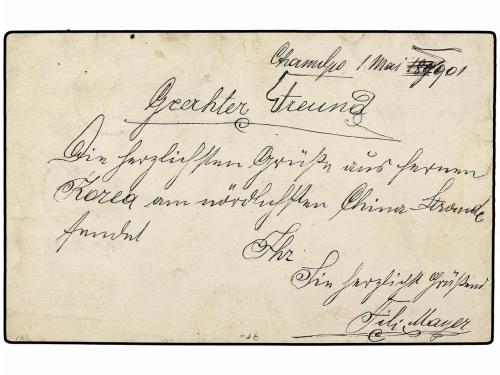 Chemulpo 1 Mai 1901
Geerhter Freund
Die herzlichsten Grüße aus fernen
Korea am nördlichsten China-Strande
sendet
Ihr
Sie herzlichst Grüßend
Mayer